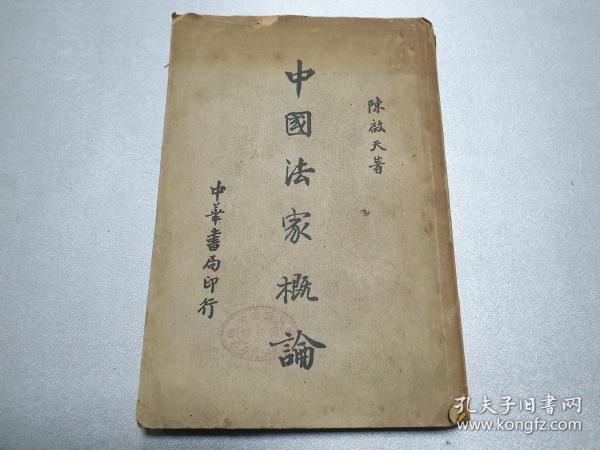 陳啟天著
中國法家概論
中華書局印行
孔夫子旧书网
www.kongfz.com